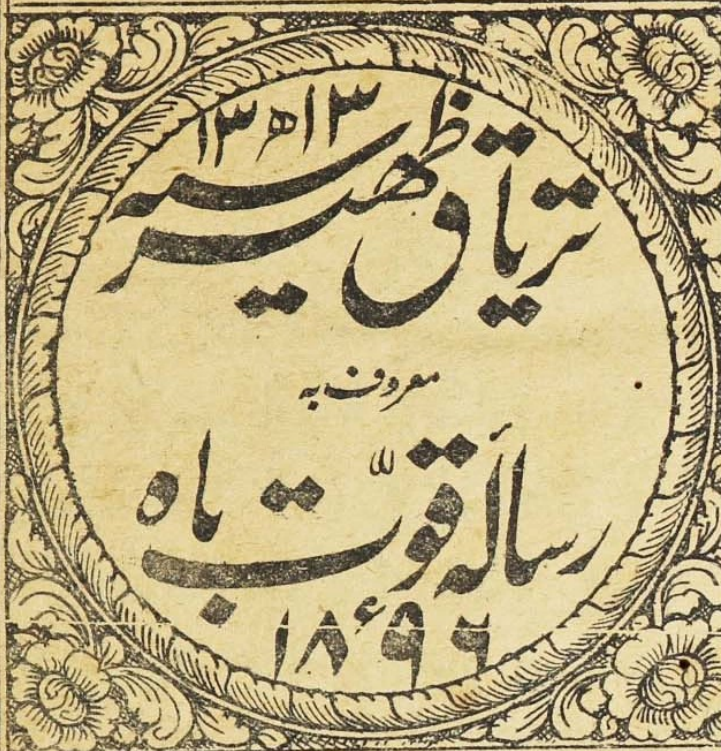 ۱۳ھ۱۳
تریاق ظھیریہ
معروف بہ
رسالۂ قوّت باہ
۱۸۹۶ء